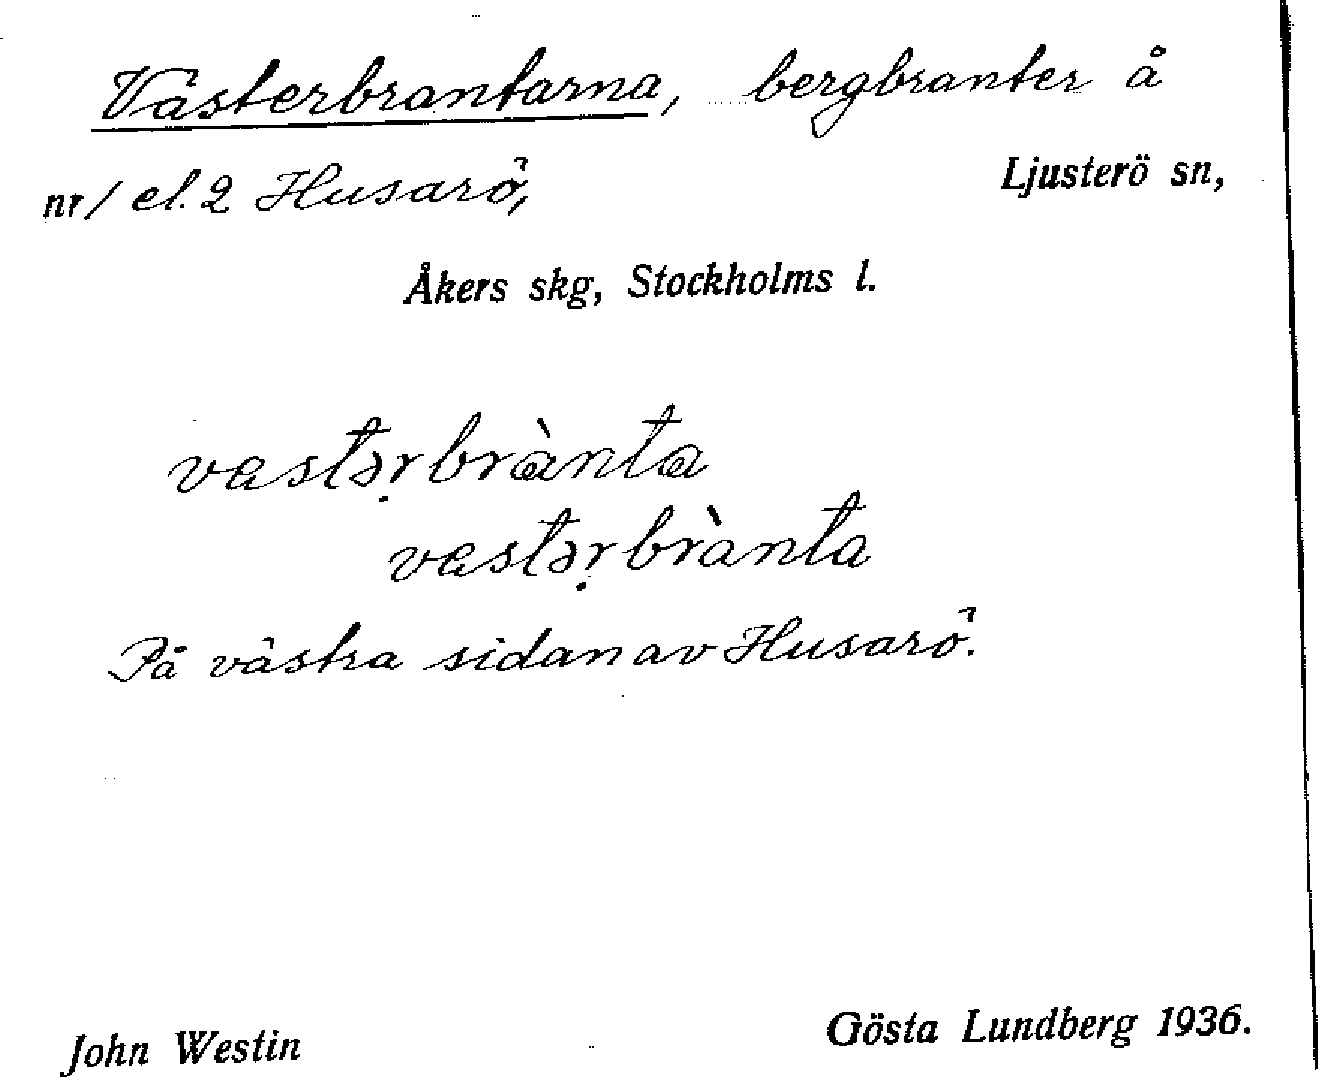 Västerbrantarna, bergbranter å
nr 1 el. 2 Husarö, Ljusterö sn,
Åkers skg, Stockholms l.
vastəṛbrànta
vastəṛbrànta
På västra sidan av Husarö.
John Westin Gösta Lundberg 1936.